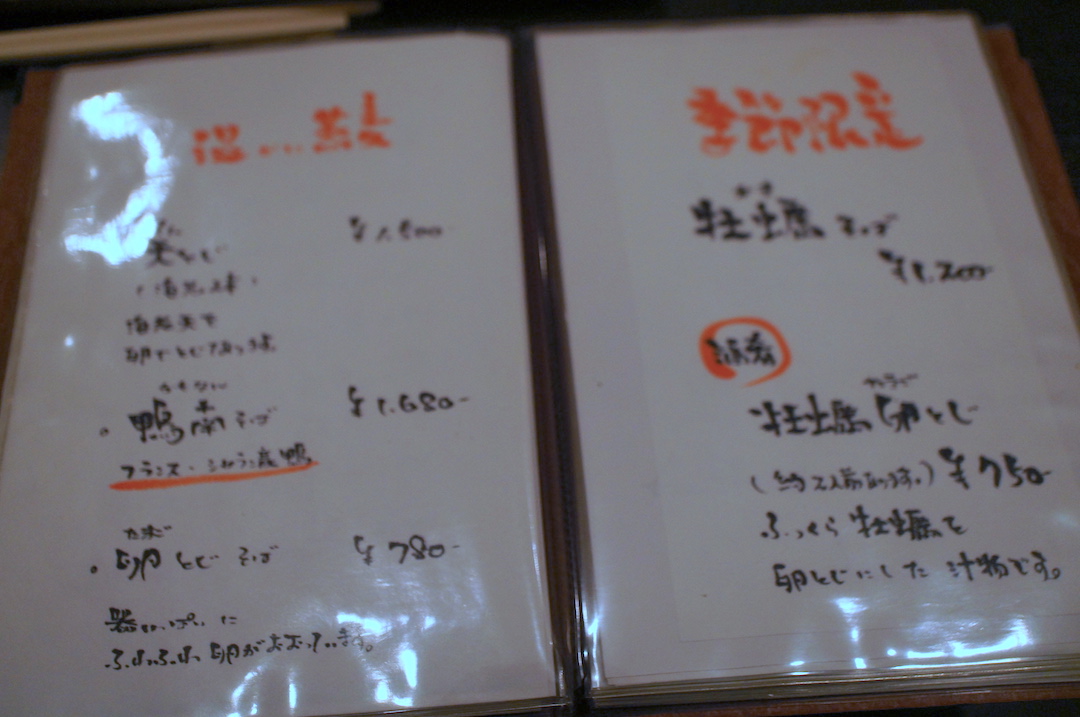 温かい蕎麦
天とじ ¥1,800-
海老天を
卵でとじてあります。
かもなん
。鴨南そば ¥1,680-
フランス・シャラン産鴨
たまご
。卵とじそば ¥780-
器いっぱいに
ふわふわ卵がおおっています。
季節限定
かき
牡蠣そば
¥1,200-
酒肴
牡蠣卵とじ
(約2人前あります。) ¥750-
ふっくら牡蠣を
卵とじにした汁物です。